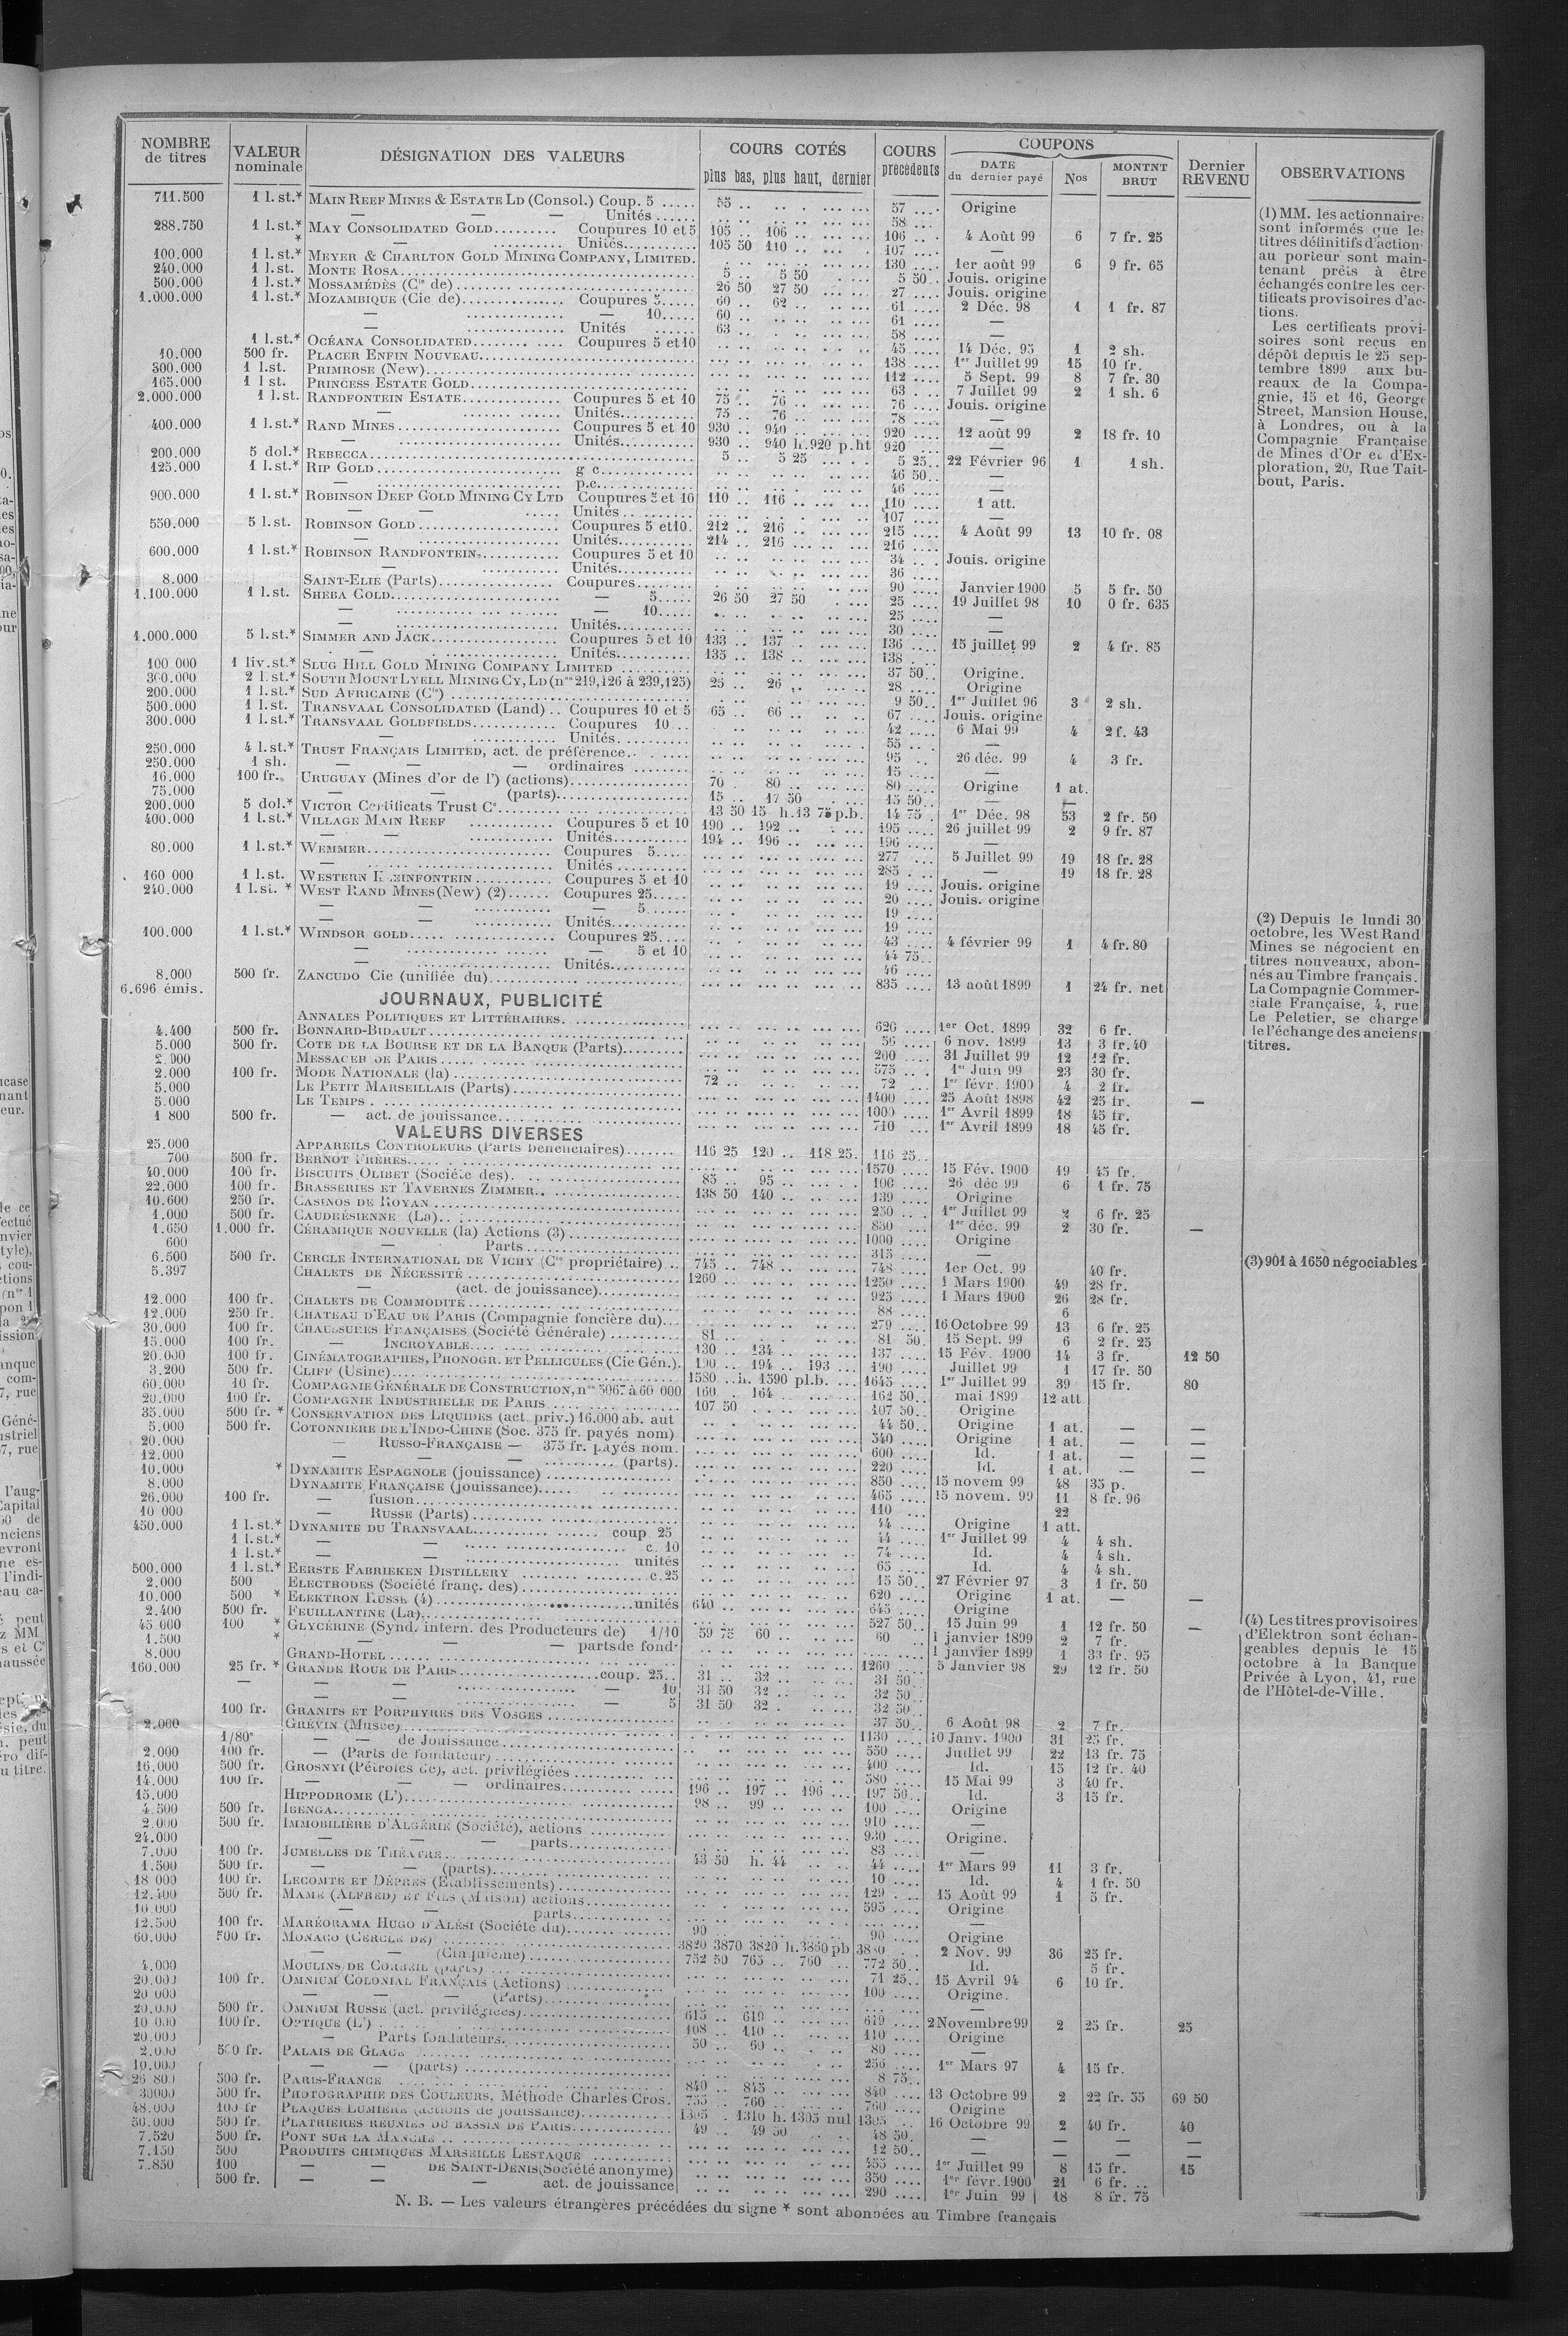 NOMBRE de titres | VALEUR nominale | DÉSIGNATION DES VALEURS | COURS COTÉS plus bas, plus haut, dernier | COURS précédents | COUPONS DATE du dernier payé | Nos | MONTNT BRUT | Dernier REVENU | OBSERVATIONS
711.500 1 l.st.* MAIN REEF MINES & ESTATE LD (Consol.) Coup. 5 55 57 Origine
— — — Unités 58
288.750 1 l.st.* MAY CONSOLIDATED GOLD Coupures 10 et 5 105 106 106 4 Août 99 6 7 fr. 25
* — Unités 105 50 110 107 —
100.000 1 l.st.* MEYER & CHARLTON GOLD MINING COMPANY, LIMITED. 130 1er août 99 6 9 fr. 65
240.000 1 l.st. MONTE ROSA 5 5 50 5 50 Jouis. origine
500.000 1 l.st.* MOSSAMÉDÈS (Cie de) 26 50 27 50 27 Jouis. origine
1.000.000 1 l.st.* MOZAMBIQUE (Cie de) Coupures 5 60 62 61 2 Déc. 98 1 1 fr. 87
— — 10 60 61 —
— Unités 63 58 —
1 l.st.* OCÉANA CONSOLIDATED Coupures 5 et 10 45 14 Déc. 95 1 2 sh.
10.000 500 fr. PLACER ENFIN NOUVEAU 138 1er Juillet 99 15 10 fr.
300.000 1 l.st. PRIMROSE (New) 112 5 Sept. 99 8 7 fr. 30
165.000 1 l st. PRINCESS ESTATE GOLD 63 7 Juillet 99 2 1 sh. 6
2.000.000 1 l.st. RANDFONTEIN ESTATE Coupures 5 et 10 75 76 76 Jouis. origine
— Unités 75 76 78 —
400.000 1 l.st.* RAND MINES Coupures 5 et 10 930 940 920 12 août 99 2 18 fr. 10
— Unités 930 940 h.920 p.ht 920 —
200.000 5 dol.* REBECCA 5 5 25 5 25 22 Février 96 1 1 sh.
125.000 1 l.st.* RIP GOLD g c. 46 50 —
— p.c. 46 —
900.000 1 l.st.* ROBINSON DEEP GOLD MINING CY LTD Coupures 5 et 10 110 116 110 1 att.
— — Unités 107 —
550.000 5 l.st. ROBINSON GOLD Coupures 5 et10. 212 216 215 4 Août 99 13 10 fr. 08
— Unités 214 216 216
600.000 1 l.st.* ROBINSON RANDFONTEIN Coupures 5 et 10 34 Jouis. origine
— Unités 36
8.000 SAINT-ELIE (Parts) Coupures 90 Janvier 1900 5 5 fr. 50
1.100.000 1 l.st. SHEBA GOLD — 5 26 50 27 50 25 19 Juillet 98 10 0 fr. 635
— — 10 25 —
— Unités 30 —
1.000.000 5 l.st.* SIMMER AND JACK Coupures 5 et 10 133 137 136 15 juillet 99 2 4 fr. 85
— Unités 135 138 138
100 000 1 liv.st.* SLUG HILL GOLD MINING COMPANY LIMITED 37 50 Origine.
300.000 2 l.st.* SOUTH MOUNT LYELL MINING CY, LD (nos 219,126 à 239,125) 25 26 28 Origine
200.000 1 l.st.* SUD AFRICAINE (Cie) 9 50 1er Juillet 96 3 2 sh.
500.000 1 l.st. TRANSVAAL CONSOLIDATED (Land) Coupures 10 et 5 65 66 67 Jouis. origine
300.000 1 l.st.* TRANSVAAL GOLDFIELDS Coupures 10 42 6 Mai 99 4 2 f. 43
— Unités 55 —
250.000 4 l.st.* TRUST FRANÇAIS LIMITED, act. de préférence 95 26 déc. 99 4 3 fr.
250.000 1 sh. — — — ordinaires 15 —
16.000 100 fr. URUGUAY (Mines d'or de l') (actions) 70 80 80 Origine 1 at.
75.000 — — (parts) 15 17 50 15 50 — —
200.000 5 dol.* VICTOR Certificats Trust Ce 13 50 15 h.13 75 p.b. 14 75 1er Déc. 98 53 2 fr. 50
400.000 1 l.st.* VILLAGE MAIN REEF Coupures 5 et 10 190 192 195 26 juillet 99 2 9 fr. 87
— — Unités 194 196 196 —
80.000 1 l.st.* WEMMER Coupures 5 277 5 Juillet 99 19 18 fr. 28
— Unités 285 — 19 18 fr. 28
160 000 1 l.st. WESTERN Coupures 5 et 10 19 Jouis. origine
240.000 1 l.st. * WEST RAND MINES (New) (2) Coupures 25 20 Jouis. origine
— — — 5 19
— — Unités 19
100.000 1 l.st.* WINDSOR GOLD Coupures 25 43 4 février 99 1 4 fr. 80
— — 5 et 10 44 75
— Unités 46
8.000 500 fr. ZANCUDO Cie (unifiée du) 835 13 août 1899 1 24 fr. net
6.696 émis.
JOURNAUX, PUBLICITÉ
ANNALES POLITIQUES ET LITTÉRAIRES
4.400 500 fr. BONNARD-BIDAULT 620 1er Oct. 1899 32 6 fr.
5.000 500 fr. COTE DE LA BOURSE ET DE LA BANQUE (Parts) 56 6 nov. 1899 13 3 fr.40
2.000 MESSAGER DE PARIS 200 31 Juillet 99 12 12 fr.
2.000 100 fr. MODE NATIONALE (la) 575 1er Juin 99 23 30 fr.
5.000 LE PETIT MARSEILLAIS (Parts) 72 72 1er févr. 1900 4 2 fr.
5.000 LE TEMPS 1400 25 Août 1898 42 25 fr. —
1 800 500 fr. — act. de jouissance 1000 1er Avril 1899 18 45 fr.
710 1er Avril 1899 18 45 fr.
VALEURS DIVERSES
25.000 APPAREILS CONTROLEURS (Parts bénéficiaires) 116 25 120 118 25 116 25
700 500 fr. BERNOT FRÈRES 1570 15 Fév. 1900 19 45 fr.
40.000 100 fr. BISCUITS OLIBET (Société des) 85 95 100 26 déc 99 6 1 fr. 75
22.000 100 fr. BRASSERIES ET TAVERNES ZIMMER 138 50 140 139 Origine
10.600 250 fr. CASINOS DE ROYAN 250 1er Juillet 99 2 6 fr. 25
1.000 500 fr. CAUDRÉSIENNE (La) 850 1er déc. 99 2 30 fr. —
1.650 1.000 fr. CÉRAMIQUE NOUVELLE (la) Actions (3) 1000 Origine
600 — Parts 315 —
6.500 500 fr. CERCLE INTERNATIONAL DE VICHY (Cie propriétaire) 745 748 748 1er Oct. 99 40 fr.
5.397 CHALETS DE NÉCESSITÉ 1260 1250 1 Mars 1900 49 28 fr.
— (act. de jouissance) 925 1 Mars 1900 26 28 fr.
12.000 100 fr. CHALETS DE COMMODITÉ 88 6
12.000 250 fr. CHATEAU D'EAU DE PARIS (Compagnie foncière du) 279 16 Octobre 99 13 6 fr. 25
30.000 100 fr. CHAUSSURES FRANÇAISES (Société Générale) 81 81 50 15 Sept. 99 6 2 fr. 25
15.000 100 fr. — INCROYABLE 130 134 137 15 Fév. 1900 14 3 fr. 12 50
20.000 100 fr. CINÉMATOGRAPHES, PHONOGR. ET PELLICULES (Cie Gén.) 190 194 193 190 Juillet 99 1 17 fr. 50
3.200 500 fr. CLIFF (Usine) 1580 h. 1590 pl.b. 1645 1er Juillet 99 39 15 fr. 80
60.000 10 fr. COMPAGNIE GÉNÉRALE DE CONSTRUCTION, nos 5067 à 60 000 160 164 162 50 mai 1899 12 att
20.000 100 fr. COMPAGNIE INDUSTRIELLE DE PARIS 107 50 107 50 Origine
35.000 500 fr. * CONSERVATION DES LIQUIDES (act. priv.) 16.000 ab. aut 44 50 Origine 1 at. — —
5.000 500 fr. COTONNIÈRE DE L'INDO-CHINE (Soc. 375 fr. payés nom) 540 Origine 1 at. — —
20.000 — RUSSO-FRANÇAISE — 375 fr. payés nom. 600 Id. 1 at. — —
12.000 — — — (parts). 220 Id. 1 at. — —
10.000 * DYNAMITE ESPAGNOLE (jouissance) 850 15 novem 99 48 35 p.
8.000 DYNAMITE FRANÇAISE (jouissance) 465 15 novem. 99 11 8 fr. 96
26.000 100 fr. — fusion 110 22
10 000 — RUSSE (Parts) 44 Origine 1 att.
450.000 1 l.st.* DYNAMITE DU TRANSVAAL coup 25 44 1er Juillet 99 4 4 sh.
1 l.st.* — — c. 10 74 Id. 4 4 sh.
1 l.st.* — — unités 65 Id. 4 4 sh.
500.000 1 l.st.* EERSTE FABRIEKEN DISTILLERY c.25 15 50 27 Février 97 3 1 fr. 50
2.000 500 ELECTRODES (Société franç. des) 620 Origine 1 at. — —
10.000 500 * ELEKTRON RUSSE (4) unités 640 645 Origine
2.400 500 fr. FEUILLANTINE (La) 527 50 15 Juin 99 1 12 fr. 50 —
45 000 100 * GLYCÉRINE (Synd. intern. des Producteurs de) 1/10 59 75 60 60 1 janvier 1899 2 7 fr.
1.500 * — — — parts de fond. 1 janvier 1899 1 33 fr. 95
8.000 GRAND-HOTEL 1260 5 Janvier 98 29 12 fr. 50
160.000 25 fr. * GRANDE ROUE DE PARIS coup. 25 31 32 31 50
— — — — — 10 31 50 32 32 50
— — — 5 31 50 32 32 50
100 fr. GRANITS ET PORPHYRES DES VOSGES 37 50 6 Août 98 2 7 fr.
2.000 GRÉVIN (Musée) 1130 10 Janv. 1900 31 25 fr.
1/80e — — de Jouissance 550 Juillet 99 22 13 fr. 75
2.000 100 fr. — (Parts de fondateur) 400 Id. 15 12 fr. 40
16.000 500 fr. GROSNYI (Pétroles de), act. privilégiées 580 15 Mai 99 3 40 fr.
14.000 100 fr. — — — ordinaires 196 197 196 197 50 Id. 3 15 fr.
15.000 HIPPODROME (L') 98 99 100 Origine
4.500 500 fr. IBENGA 910 —
2.000 500 fr. IMMOBILIÈRE D'ALGÉRIE (Société), actions 930 Origine.
24.000 — — — parts 83 —
7.000 100 fr. JUMELLES DE THÉATRE 43 50 h. 44 44 1er Mars 99 11 3 fr.
1.500 500 fr. — — (parts) 10 Id. 4 1 fr. 50
18 000 100 fr. LECOMTE ET DÉPRÉS (Établissements) 129 15 Août 99 1 5 fr.
12.400 500 fr. MAME (ALFRED) ET FILS (Maison) actions 595 Origine
10.000 — — parts —
12.500 100 fr. MARÉORAMA HUGO D'ALÉSI (Société du) 90 90 Origine
60.000 500 fr. MONACO (CERCLE DE) 3820 3870 3820 h.3860 pb 2 Nov. 99 36 25 fr.
— — (Cinquième) 752 50 765 760 772 50 Id. 5 fr.
4.000 MOULINS DE CORBEIL (parts) 71 25 15 Avril 94 6 10 fr.
20.000 100 fr. OMNIUM COLONIAL FRANÇAIS (Actions) 100 Origine.
20 000 — — — (Parts) —
20.000 500 fr. OMNIUM RUSSE (act. privilégiées) 615 619 619 2 Novembre 99 2 25 fr. 25
10 000 100 fr. OPTIQUE (L') 108 110 110 Origine
20.000 — Parts fondateurs. 50 60 80 —
2.000 500 fr. PALAIS DE GLACE 256 1er Mars 97 4 15 fr.
10.000 — — (parts) 8 75
26 800 500 fr. PARIS-FRANCE 840 845 840 13 Octobre 99 2 22 fr. 55 69 50
30000 500 fr. PHOTOGRAPHIE DES COULEURS, Méthode Charles Cros. 755 760 760 Origine
48.000 100 fr PLAQUES LUMIÈRE (actions de jouissance) 1305 1310 h. 1305 nul 1305 16 Octobre 99 2 40 fr. 40
50.000 500 fr. PLATRIÈRES RÉUNIES DU BASSIN DE PARIS 49 49 50 48 50 — — — —
7.520 500 fr. PONT SUR LA MANCHE 12 50 — — — —
7.150 500 PRODUITS CHIMIQUES MARSEILLE LESTAQUE 455 1er Juillet 99 8 15 fr. 15
7.850 100 — — DE SAINT-DENIS (Société anonyme) 350 1er févr. 1900 21 6 fr.
500 fr. — — — act. de jouissance 290 1er Juin 99 18 8 fr. 75
N. B. — Les valeurs étrangères précédées du signe * sont abonnées au Timbre français
(1) MM. les actionnaires
sont informés que les
titres définitifs d'action
au porteur sont main-
tenant prêts à être
échangés contre les cer-
tificats provisoires d'ac-
tions.
Les certificats provi-
soires sont reçus en
dépôt depuis le 25 sep-
tembre 1899 aux bu-
reaux de la Compa-
gnie, 15 et 16, George
Street, Mansion House,
à Londres, ou à la
Compagnie Française
de Mines d'Or et d'Ex-
ploration, 20, Rue Tait-
bout, Paris.
(2) Depuis le lundi 30
octobre, les West Rand
Mines se négocient en
titres nouveaux, abon-
nés au Timbre français.
La Compagnie Commer-
ciale Française, 4, rue
Le Peletier, se charge
de l'échange des anciens
titres.
(3) 901 à 1650 négociables
(4) Les titres provisoires
d'Elektron sont échan-
geables depuis le 15
octobre à la Banque
Privée à Lyon, 41, rue
de l'Hôtel-de-Ville.